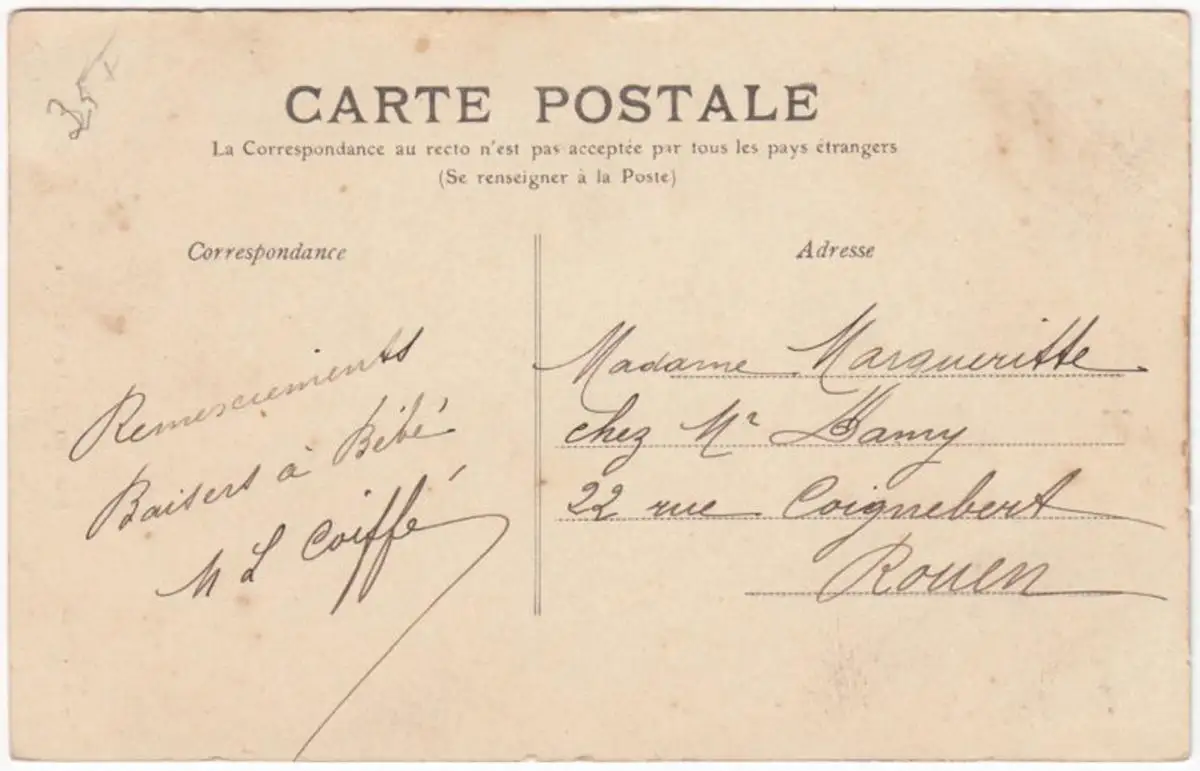 CARTE POSTALE
La Correspondance au recto n'est pas acceptée par tous les pays étrangers
(Se renseigner à la Poste)
Correspondance
Remerciements
Baisers à Bébé
M L Coiffé
Adresse
Madame Margueritte
chez Mr Hamy
22 rue Coignebert
Rouen